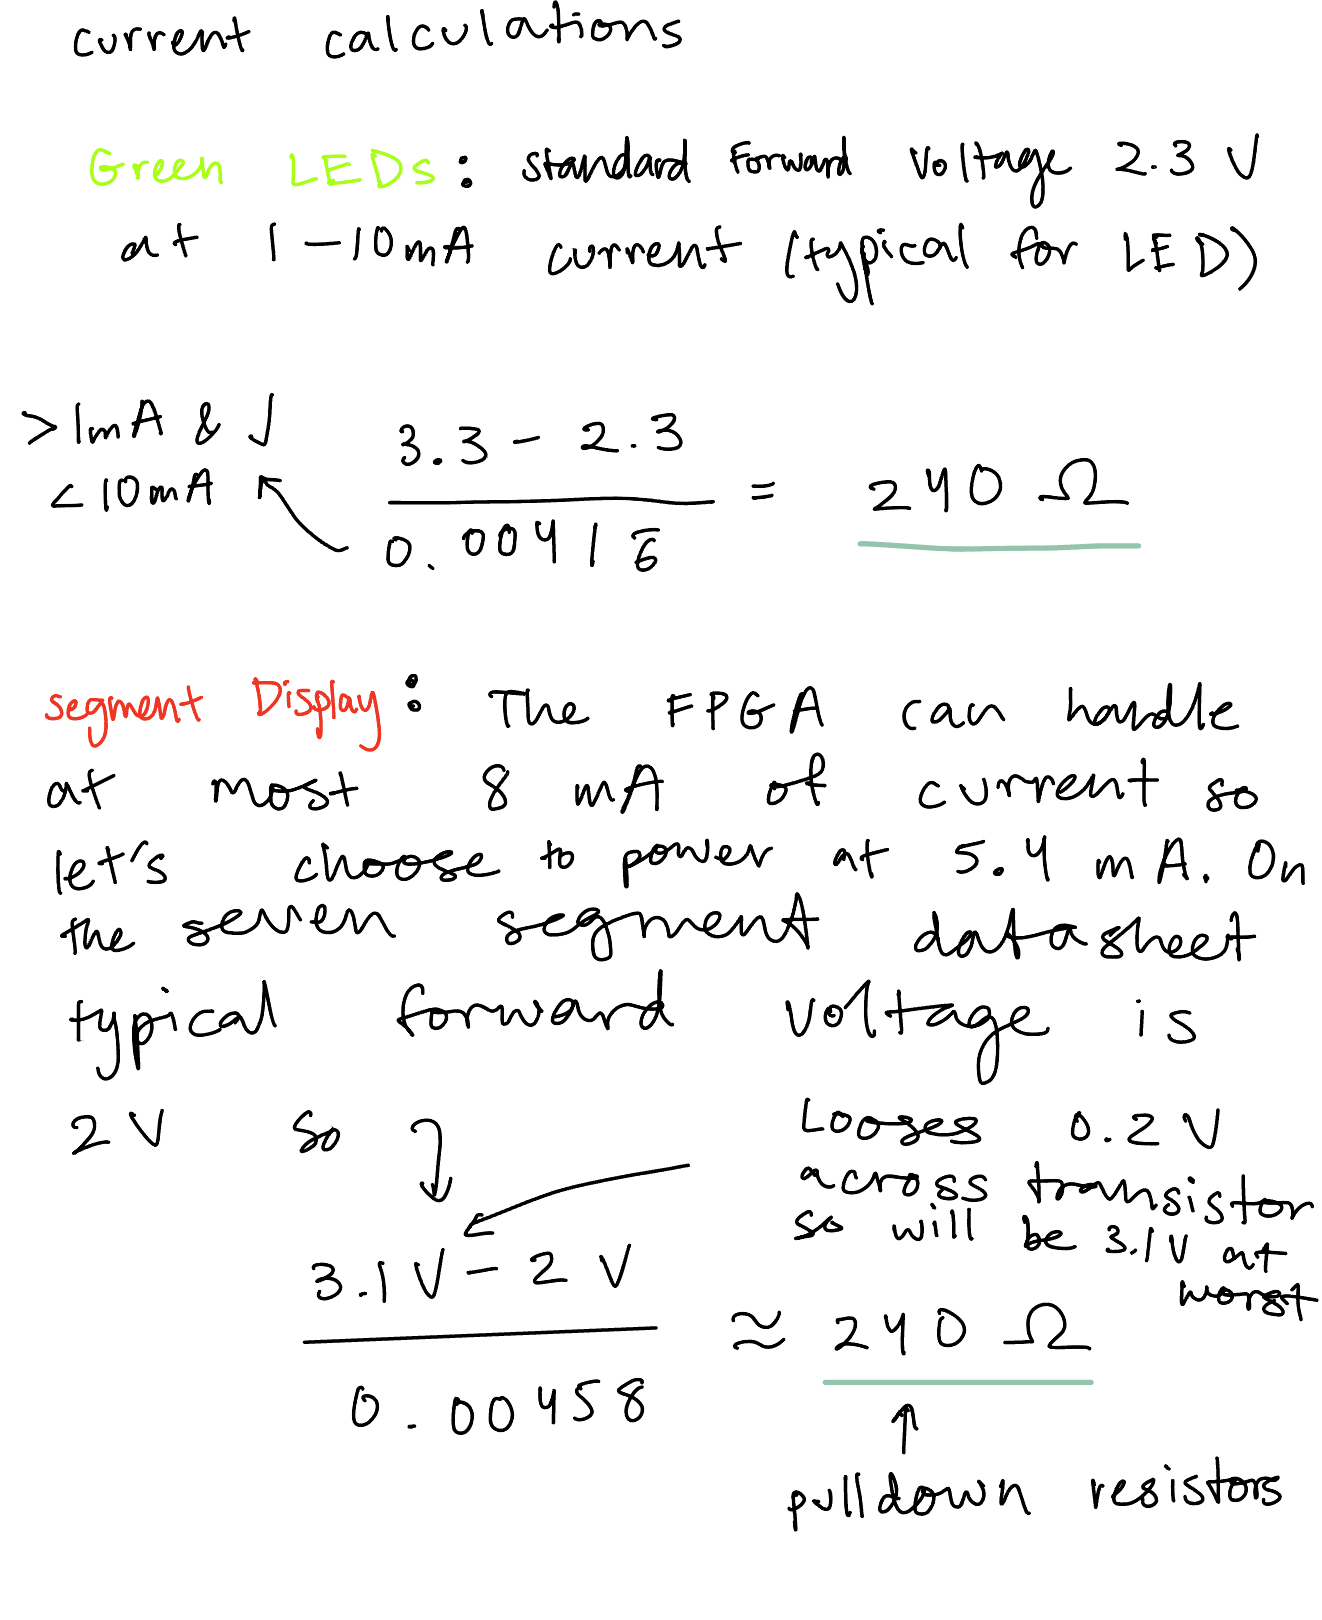 current calculations
Green LEDs: standard Forward Voltage 2.3 V
at 1-10mA current (typical for LED)
>1mA & √
<10mA
3.3 - 2.3
0.00416̅
= 240 Ω
segment Display: The FPGA can handle
at most 8 mA of current so
let's choose to power at 5.4 mA. On
the seven segment datasheet
typical forward voltage is
2 V so
Looses 0.2 V
across transistor
so will be 3.1V at
worst
3.1V - 2 V
0.00458
≈ 240 Ω
↑
pulldown resistors